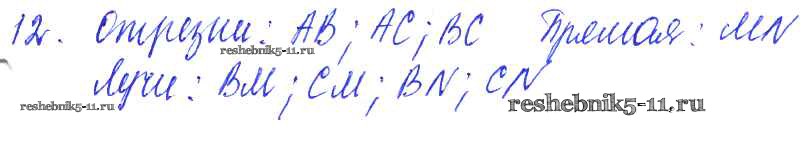 12. Отрезки: AB; AC; BC Прямая: MN
reshebnik5-11.ru
Лучи: BM; CM; BN; CN
reshebnik5-11.ru
reshebnik5-11.ru